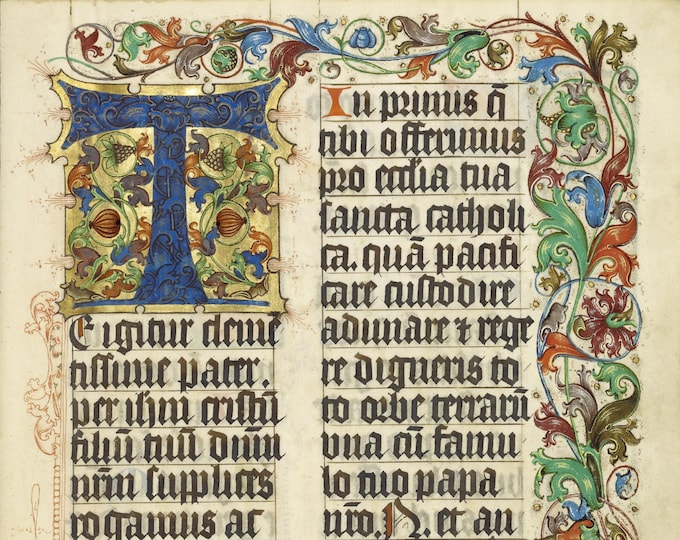 T
E igitur cleme
tissime pater.
per ihm cristū
filiū tuū dnm
nrm supplices
rogamus ac
In primis q̄
tibi offerimus
pro ecclia tua
sancta catholi
ca. quā pacifi
care custodire
adunare ⁊ rege
re digneris to
to orbe terrarū
vna cū famu
lo tuo papa
nr̄o. N. et an